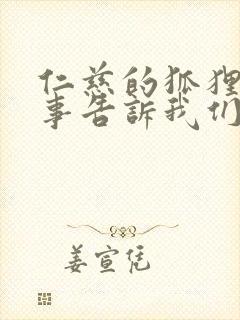 仁慈的狐狸
事告訴我们
姜宣凭